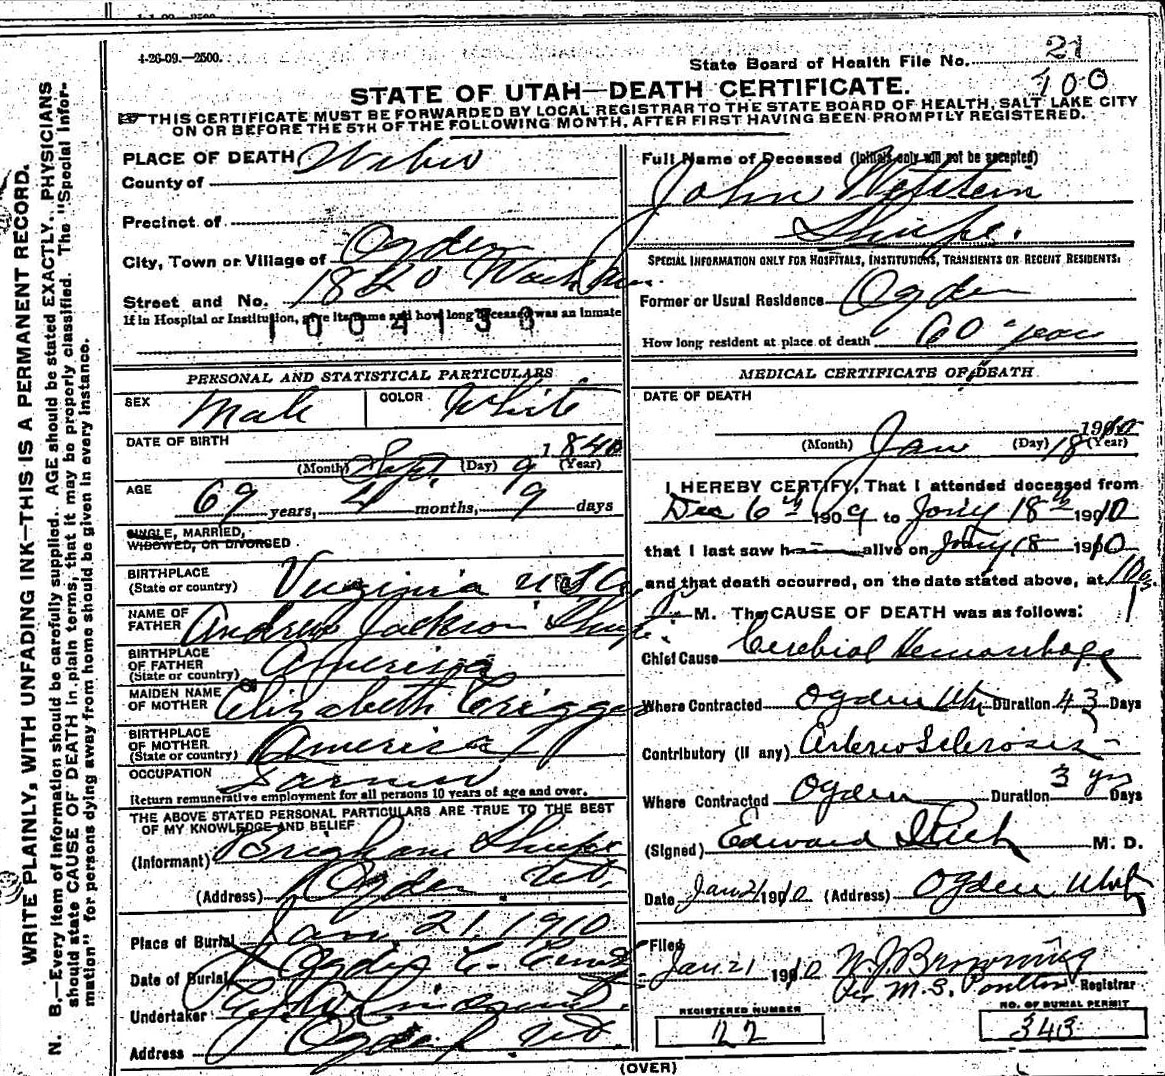 4-26-09.—2500.
State Board of Health File No. 21
100
STATE OF UTAH—DEATH CERTIFICATE.
THIS CERTIFICATE MUST BE FORWARDED BY LOCAL REGISTRAR TO THE STATE BOARD OF HEALTH, SALT LAKE CITY
ON OR BEFORE THE 5TH OF THE FOLLOWING MONTH, AFTER FIRST HAVING BEEN PROMPTLY REGISTERED.
WRITE PLAINLY, WITH UNFADING INK—THIS IS A PERMANENT RECORD.
N. B.—Every item of information should be carefully supplied. AGE should be stated EXACTLY. PHYSICIANS
should state CAUSE OF DEATH in plain terms, that it may be properly classified. The "Special Infor-
mation" for persons dying away from home should be given in every instance.
PLACE OF DEATH Weber
County of
Precinct of
City, Town or Village of Ogden
Street and No. 1820 Wash
If in Hospital or Institution, give its name and how long deceased was an inmate
1004136
PERSONAL AND STATISTICAL PARTICULARS
SEX Male COLOR White
DATE OF BIRTH
(Month) Sept. (Day) 9 1840 (Year)
AGE 69 years, 4 months, 9 days
SINGLE, MARRIED,
WIDOWED, OR DIVORCED
BIRTHPLACE
(State or country) Virginia U S A
NAME OF
FATHER Andrew Jackson Shupe.
BIRTHPLACE
OF FATHER
(State or country) America
MAIDEN NAME
OF MOTHER Elizabeth Creigger
BIRTHPLACE
OF MOTHER
(State or country) America
OCCUPATION Farmer
Return remunerative employment for all persons 10 years of age and over.
THE ABOVE STATED PERSONAL PARTICULARS ARE TRUE TO THE BEST
OF MY KNOWLEDGE AND BELIEF
(Informant) Brigham Shupe
(Address) Ogden Ut.
Place of Burial Jan 21 1910
Date of Burial Ogden C. Cemt
Undertaker
Address Ogden Ut
Full Name of Deceased (Initials only will not be accepted)
John Wetstein
Shupe.
SPECIAL INFORMATION ONLY FOR HOSPITALS, INSTITUTIONS, TRANSIENTS OR RECENT RESIDENTS:
Former or Usual Residence Ogden
How long resident at place of death 60 years
MEDICAL CERTIFICATE OF DEATH
DATE OF DEATH
(Month) Jan (Day) 18 1910 (Year)
I HEREBY CERTIFY, That I attended deceased from
Dec 6th 1909 to Jany 18th 1910
that I last saw h alive on Jany 18 1910
and that death ocourred, on the date stated above, at 10
M. The CAUSE OF DEATH was as follows:
Chief Cause Cerebral Hemorrhage
Where Contracted Ogden Utah Duration 43 Days
Contributory (if any) Arterio Sclerosis
Where Contracted Ogden Duration 3 yrs Days
(Signed) Edward I Rich M. D.
Date Jan 21 1910 (Address) Ogden Utah
Filed
Jan. 21 1910 N. J. Browning
Per M. S. Poulter Registrar
REGISTERED NUMBER
22
NO. OF BURIAL PERMIT
343
(OVER)